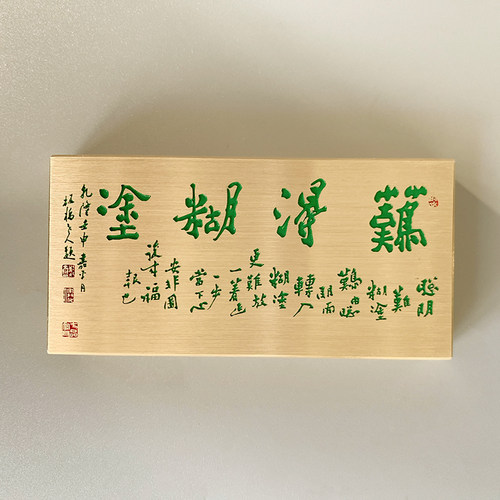 難得糊塗
聰明
難
糊塗
難由聰
明而
轉入
糊塗
更難放
一著退
一步
當下心
安非圖
後來福
報也
乾隆壬申
板橋老人題